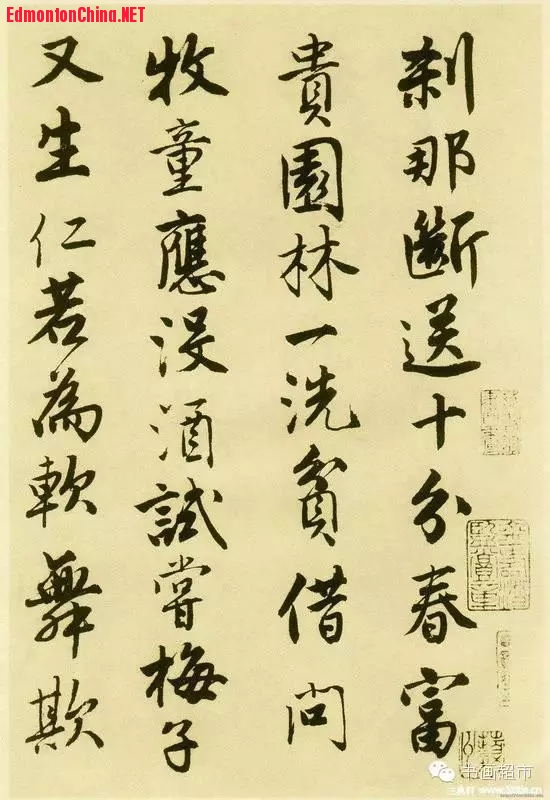 EdmontonChina.NET
刹那斷送十分春富
貴園林一洗貧借問
牧童應没酒試嘗梅子
又生仁若為軟舞欺
书画超市